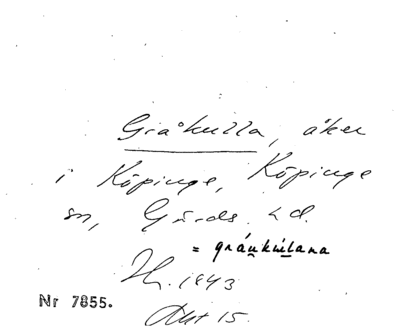 Gråkulla, åker
i Köpinge, Köpinge
sn, Gärds hd.
= gráukúlana
1943
Nr 7855.
Akt 15.